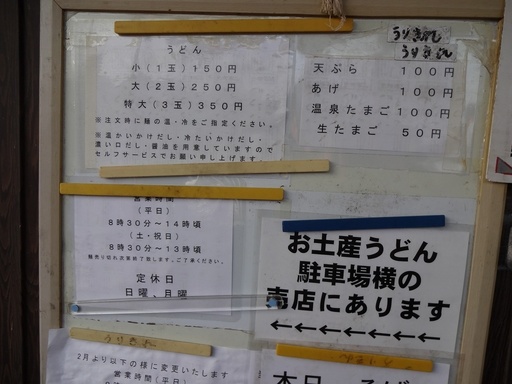 うどん
小(1玉)150円
大(2玉)250円
特大(3玉)350円
※注文時に麺の温・冷をご指定ください。
※温かいかけだし・冷たいかけだし・
濃い口だし・醤油を用意していますので
セルフサービスでお願い申し上げます。
うりきれ
うりきれ
天ぷら 100円
あげ 100円
温泉たまご 100円
生たまご 50円
営業時間
(平日)
8時30分～14時頃
(土・祝日)
8時30分～13時頃
麺売り切れ次第終了致します。ご了承ください。
定休日
日曜、月曜
お土産うどん
駐車場横の
売店にあります
←←←←←←←
うりきれ
2月より以下の様に変更いたします
営業時間(平日)
本日